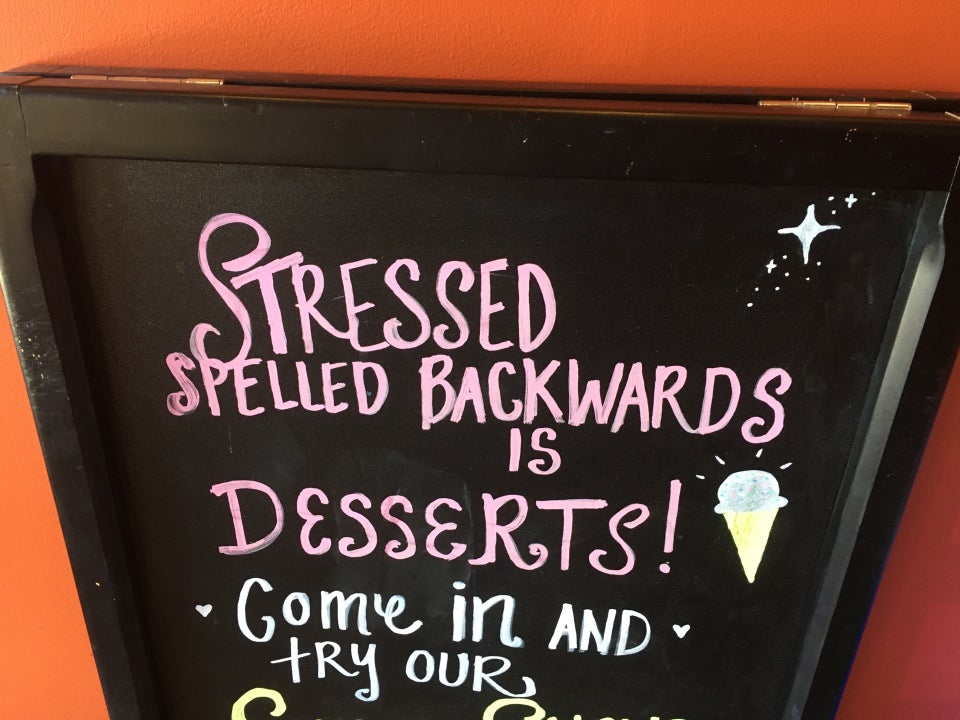 STRESSED
SPELLED BACKWARDS
IS
DESSERTS!
Come in AND
tRY OUR